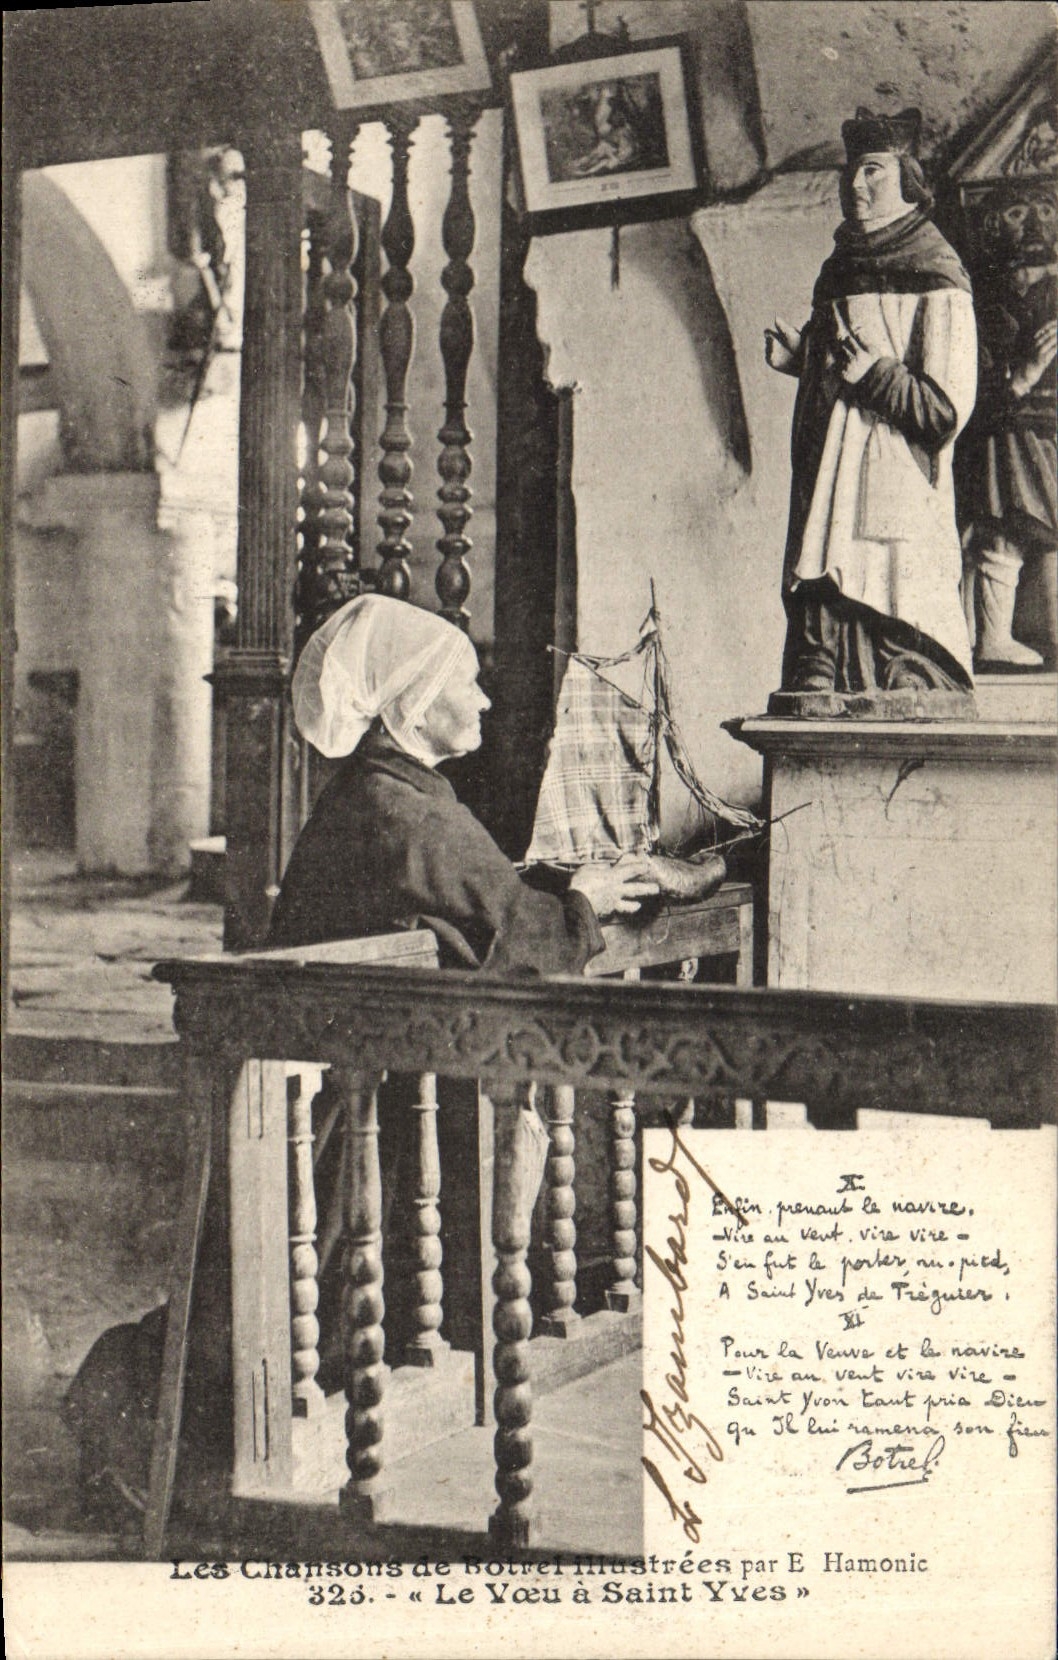 X
Enfin, prenant le navire.
- Vire au vent, vire vire -
S'en fut le porter, nu-pied,
A Saint Yves de Tréguier.
XI
Pour la Veuve et le navire
- Vire au vent vire vire -
Saint Yvon tant pria Dieu
qu'Il lui ramena son fieu
Botrel.
Les Chansons de Botrel illustrées par E Hamonic
325. - « Le Vœu à Saint Yves »